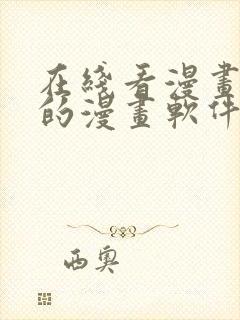 在綫看漫畫
的漫畫軟件
西奧